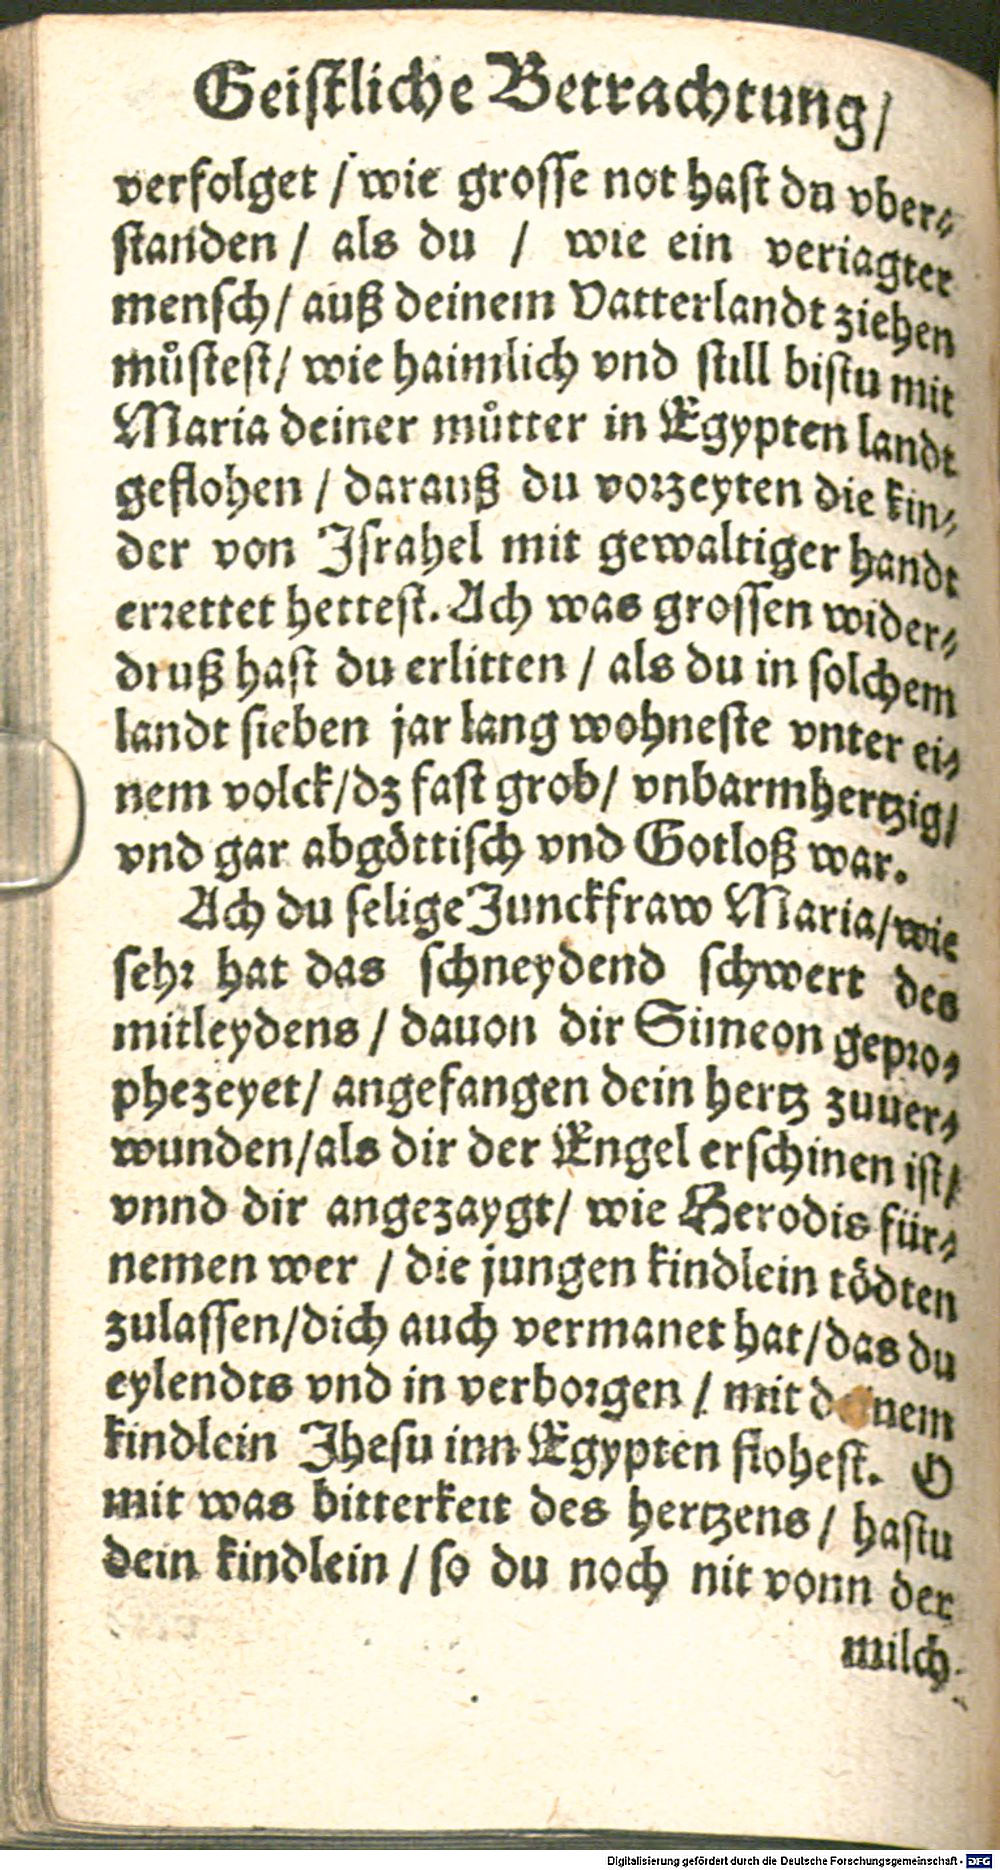 Geistliche Betrachtung/
verfolget / wie grosse not hast du vber⸗
standen / als du / wie ein veriagter
mensch/ auß deinem Vatterlandt ziehen
muͤstest/ wie haimlich vnd still bistu mit
Maria deiner muͤtter in Egypten landt
geflohen / darauß du vorzeyten die kin⸗
der von Israhel mit gewaltiger handt
errettet hettest. Ach was grossen wider⸗
druß hast du erlitten / als du in solchem
landt sieben jar lang wohneste vnter ei⸗
nem volck/dz fast grob/ vnbarmhertzig/
vnd gar abgöttisch vnd Gotloß war.
Ach du selige Junckfraw Maria/wie
sehr hat das schneydend schwert des
mitleydens / dauon dir Simeon gepro⸗
phezeyet/ angefangen dein hertz zuuer⸗
wunden/als dir der Engel erschinen ist/
vnnd dir angezaygt/ wie Herodis für⸗
nemen wer / die jungen kindlein tödten
zulassen/dich auch vermanet hat/das du
eylendts vnd in verborgen / mit deinem
kindlein Jhesu inn Egypten flohest. O
mit was bitterkeit des hertzens / hastu
dein kindlein / so du noch nit vonn der
milch
Digitalisierung gefördert durch die Deutsche Forschungsgemeinschaft - DFG